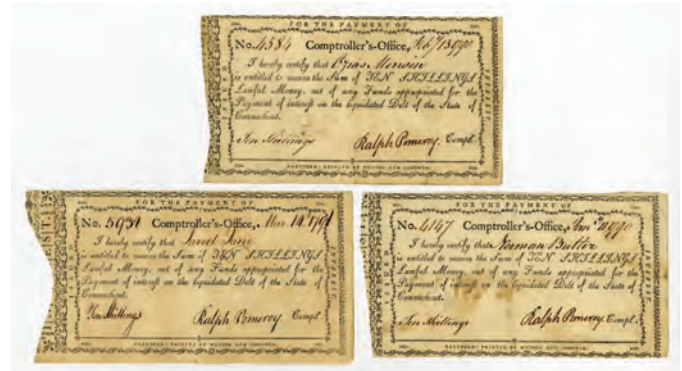 FOR THE PAYMENT OF
No. 4584 Comptroller's-Office, Feb 1790
I hereby certify that Merwin
is entitled to receive the Sum of TEN SHILLINGS
Lawful Money, out of any Funds appropriated for the
Payment of interest on the liquidated Debt of the State of
Connecticut.
Ten Shillings Ralph Pomeroy. Compt.
HARTFORD: PRINTED BY HUDSON AND GOODWIN.
ISSUED
INTEREST.
FOR THE PAYMENT OF
No. 5931 Comptroller's-Office, 1791
I hereby certify that
is entitled to receive the Sum of TEN SHILLINGS
Lawful Money, out of any Funds appropriated for the
Payment of interest on the liquidated Debt of the State of
Connecticut.
Ten Shillings Ralph Pomeroy Compt.
HARTFORD: PRINTED BY HUDSON AND GOODWIN.
ISSUED
INTEREST.
FOR THE PAYMENT OF
No. 4147 Comptroller's-Office, 1790
I hereby certify that Norman Butler
is entitled to receive the Sum of TEN SHILLINGS
Lawful Money, out of any Funds appropriated for the
Payment of interest on the liquidated Debt of the State of
Connecticut.
Ten Shillings Ralph Pomeroy. Compt.
HARTFORD: PRINTED BY HUDSON AND GOODWIN.
ISSUED
INTEREST.